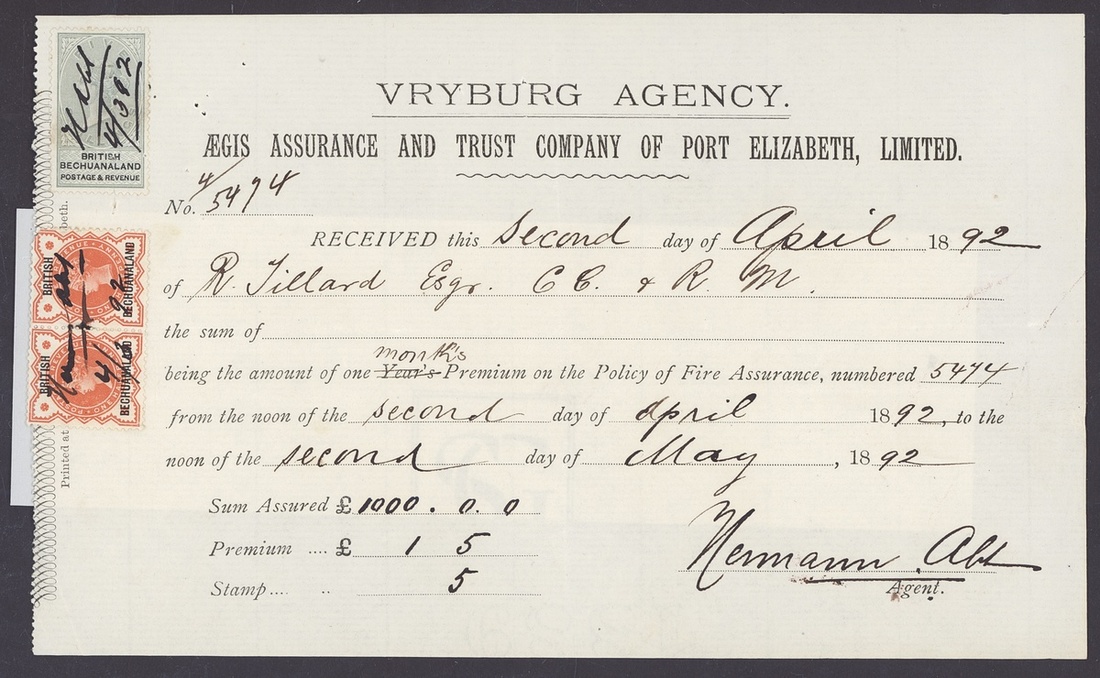 VRYBURG AGENCY.
ÆGIS ASSURANCE AND TRUST COMPANY OF PORT ELIZABETH, LIMITED.
No. 4/5474
RECEIVED this second day of April 1892
of R. Tillard Esqr. C C. & R. M.
the sum of
month's
being the amount of one Year's Premium on the Policy of Fire Assurance, numbered 5474
from the noon of the second day of April 1892, to the
noon of the second day of May, 1892
Sum Assured £1000. 0. 0
Premium .... £ 1 5
Stamp .... .. 5
Hermann Abt
Agent.
H Abt
4/3 92
BRITISH
BECHUANALAND
POSTAGE & REVENUE
BRITISH
BECHUANALAND
92
BRITISH
BECHUANALAND
4/3
Printed at
beth.